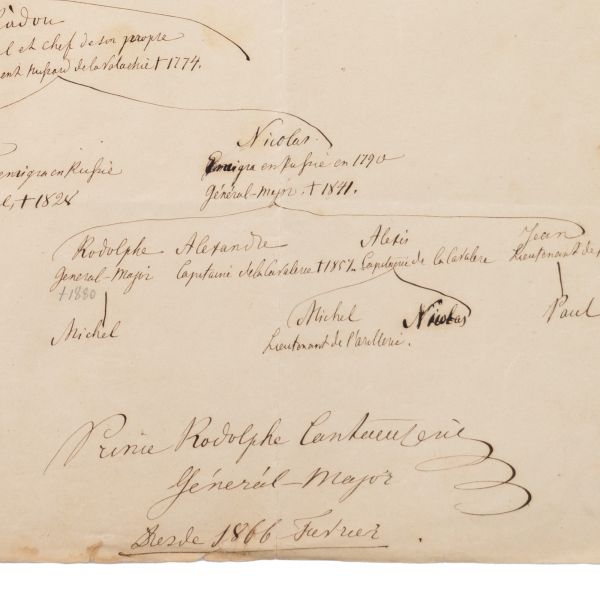 Râdou
l et chef de son propre
ent husard de la Valachie † 1774.
emigra en Russie
l, † 1828
Nicolas.
Emigra en Russie en 1790
Général-Major. † 1841.
Rodolphe
General-Major
†1880
Michel
Alexandre
Capitaine de la Cavalerie †1857.
Alexis
Capitaine de la Cavalerie
Michel
Lieutenant de l'artillerie.
Nicolas
Jean
Lieutenant de
Paul
Prince Rodolphe Cantacuzene
Général-Major
Dresde 1866 Fevrier